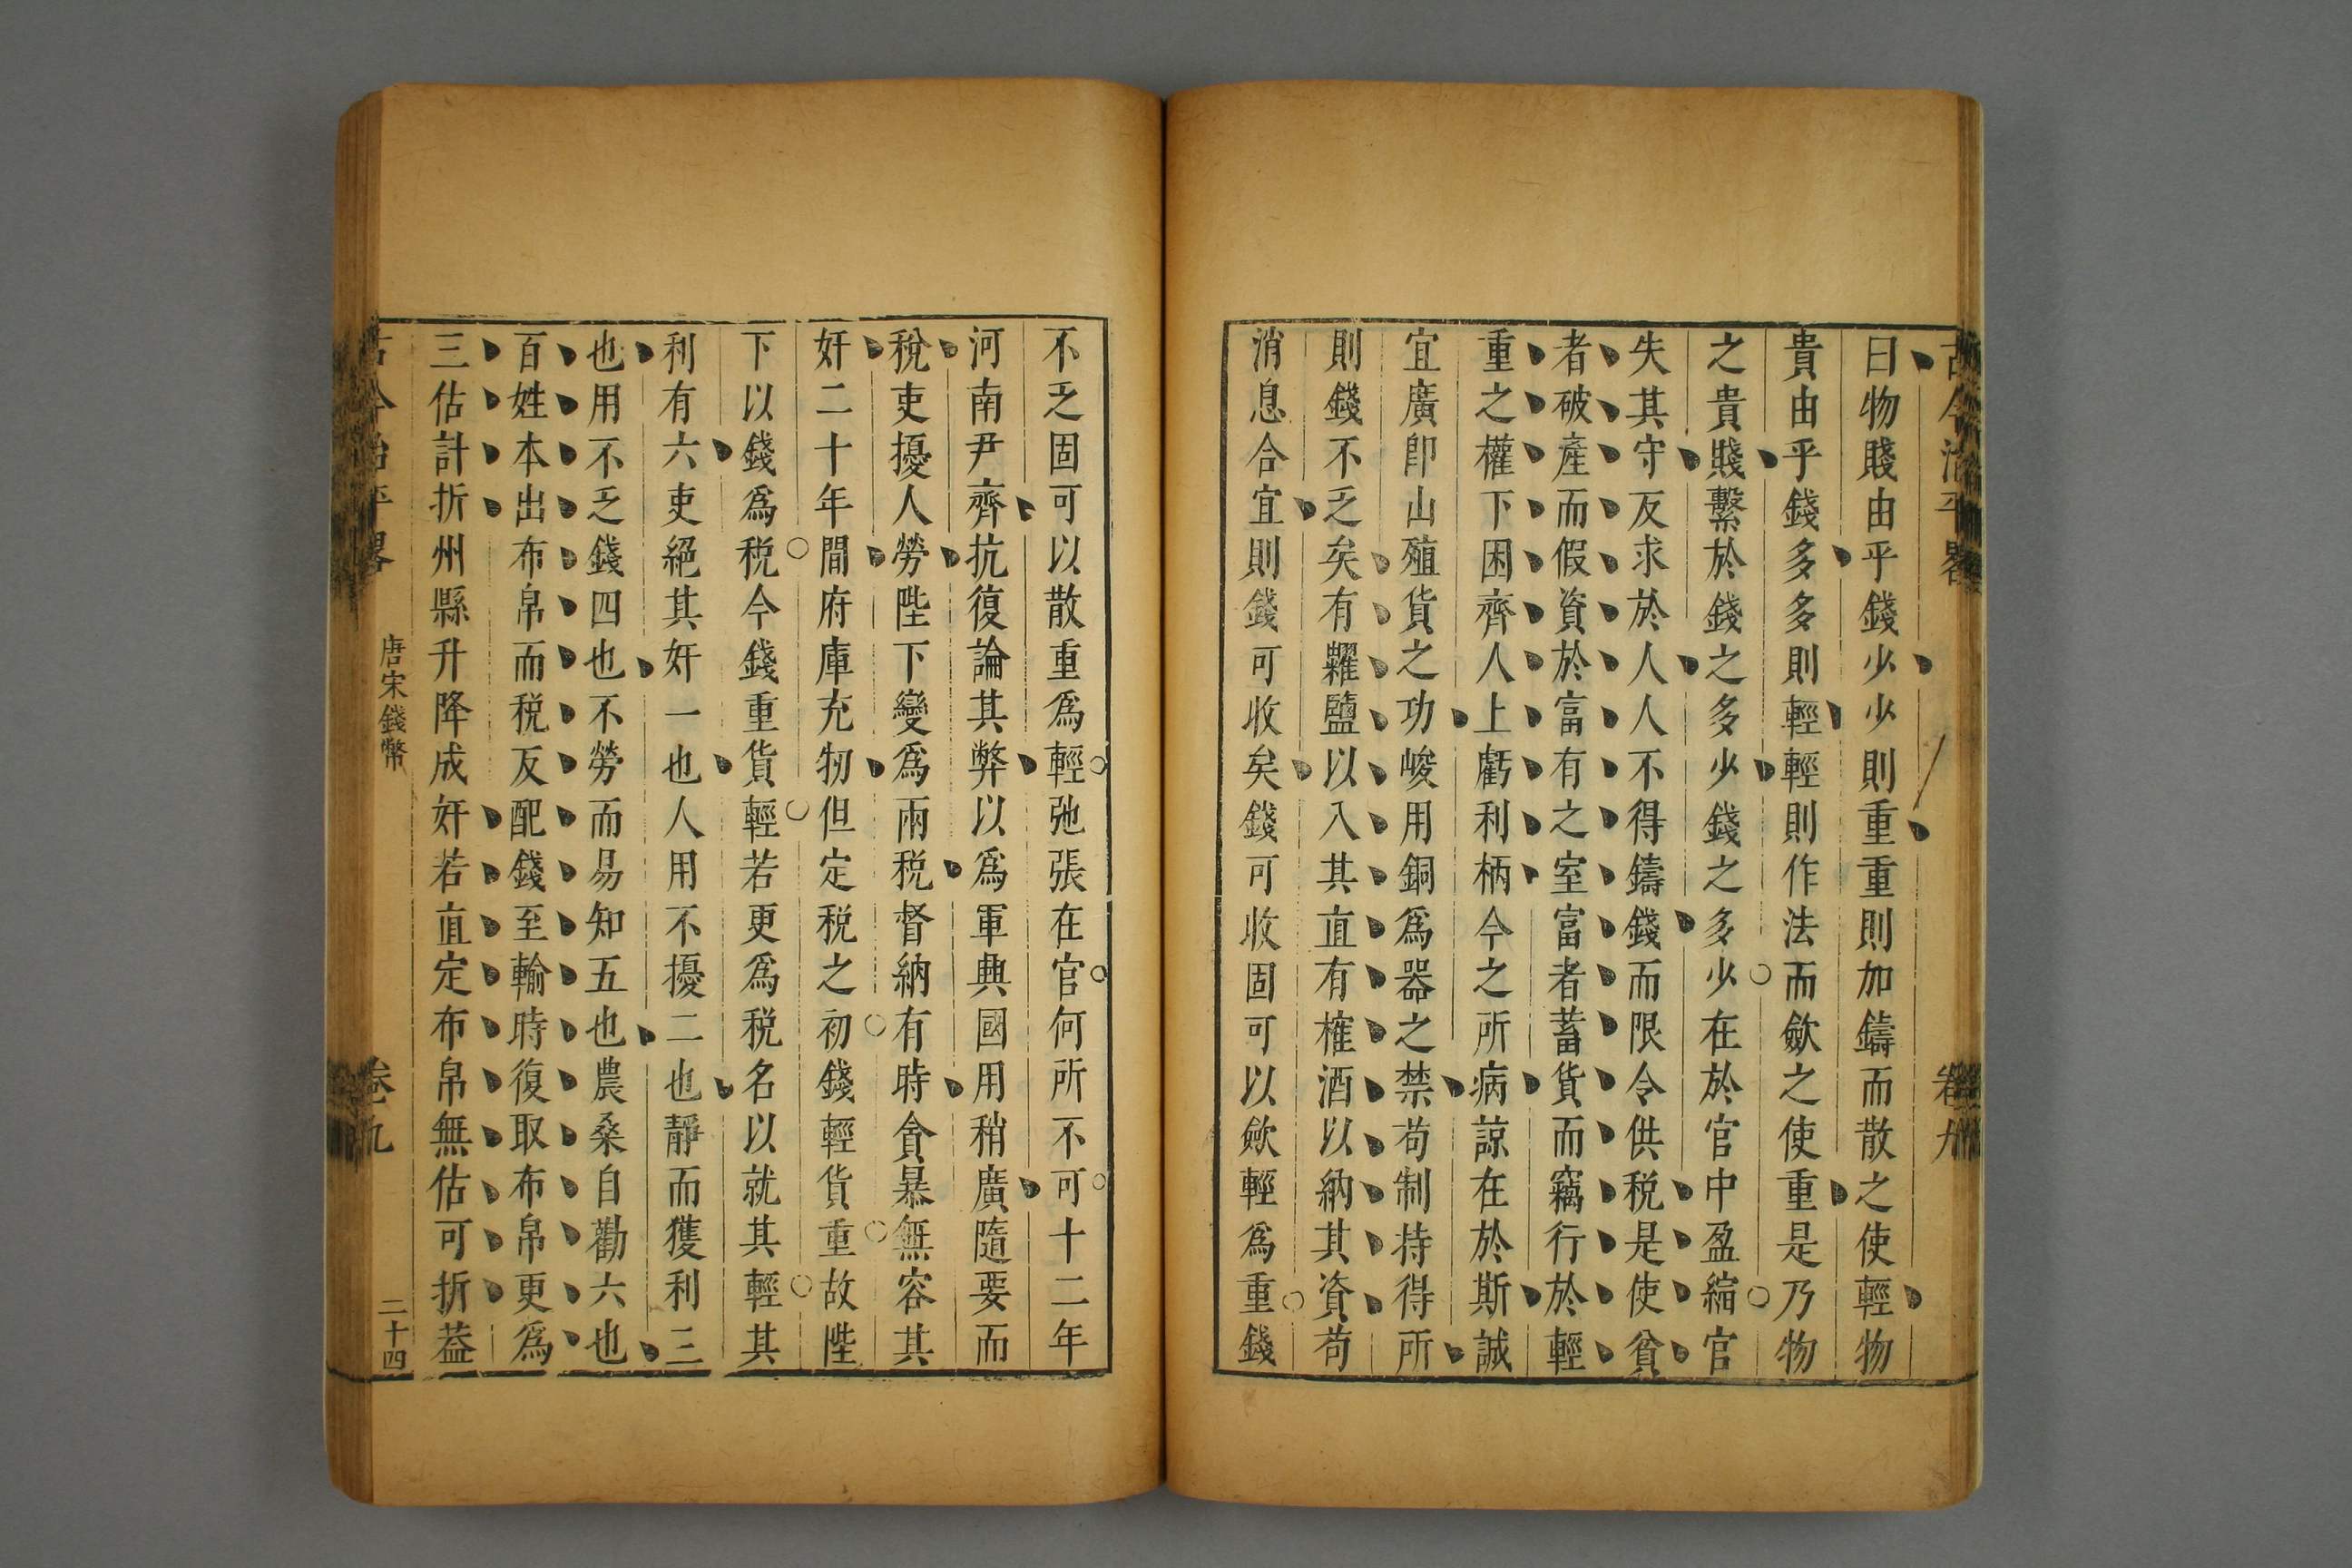 古今治平畧 卷九
曰物賤由乎錢少少則重重則加鑄而散之使輕物
貴由乎錢多多則輕輕則作法而歛之使重是乃物
之貴賤繫於錢之多少少錢之多少在於官中盈縮官
失其守反求於人人不得鑄錢而限令供税是使貧
者破產而假資於富有之室富者蓄貨而竊行於輕
重之權下困齊人上虧利柄今之所病諒在於斯誠
宜廣卽山殖貨之功峻用銅爲器之禁苟制持得所
則錢不乏矣有糶鹽以入其直有榷酒以納其資苟
消息合宜則錢可收矣錢可收固可以歛輕爲重錢
不乏固可以散重爲輕弛張在官何所不可十二年
河南尹齊抗復論其弊以爲軍典國用稍廣隨要而
稅吏擾人勞陛下變爲兩税督納有時貪暴無容其
奸二十年間府庫充牣但定税之初錢輕貨重故陛
下以錢爲税今錢重貨輕若更爲税名以就其輕其
利有六吏絕其奸一也人用不擾二也靜而獲利三
也用不乏錢四也不勞而易知五也農桑自勸六也
百姓本出布帛而税反配錢至輸時復取布帛更爲
三估計折州縣升降成奸若直定布帛無估可折葢
古今治平畧 唐宋錢幣 卷九 二十四